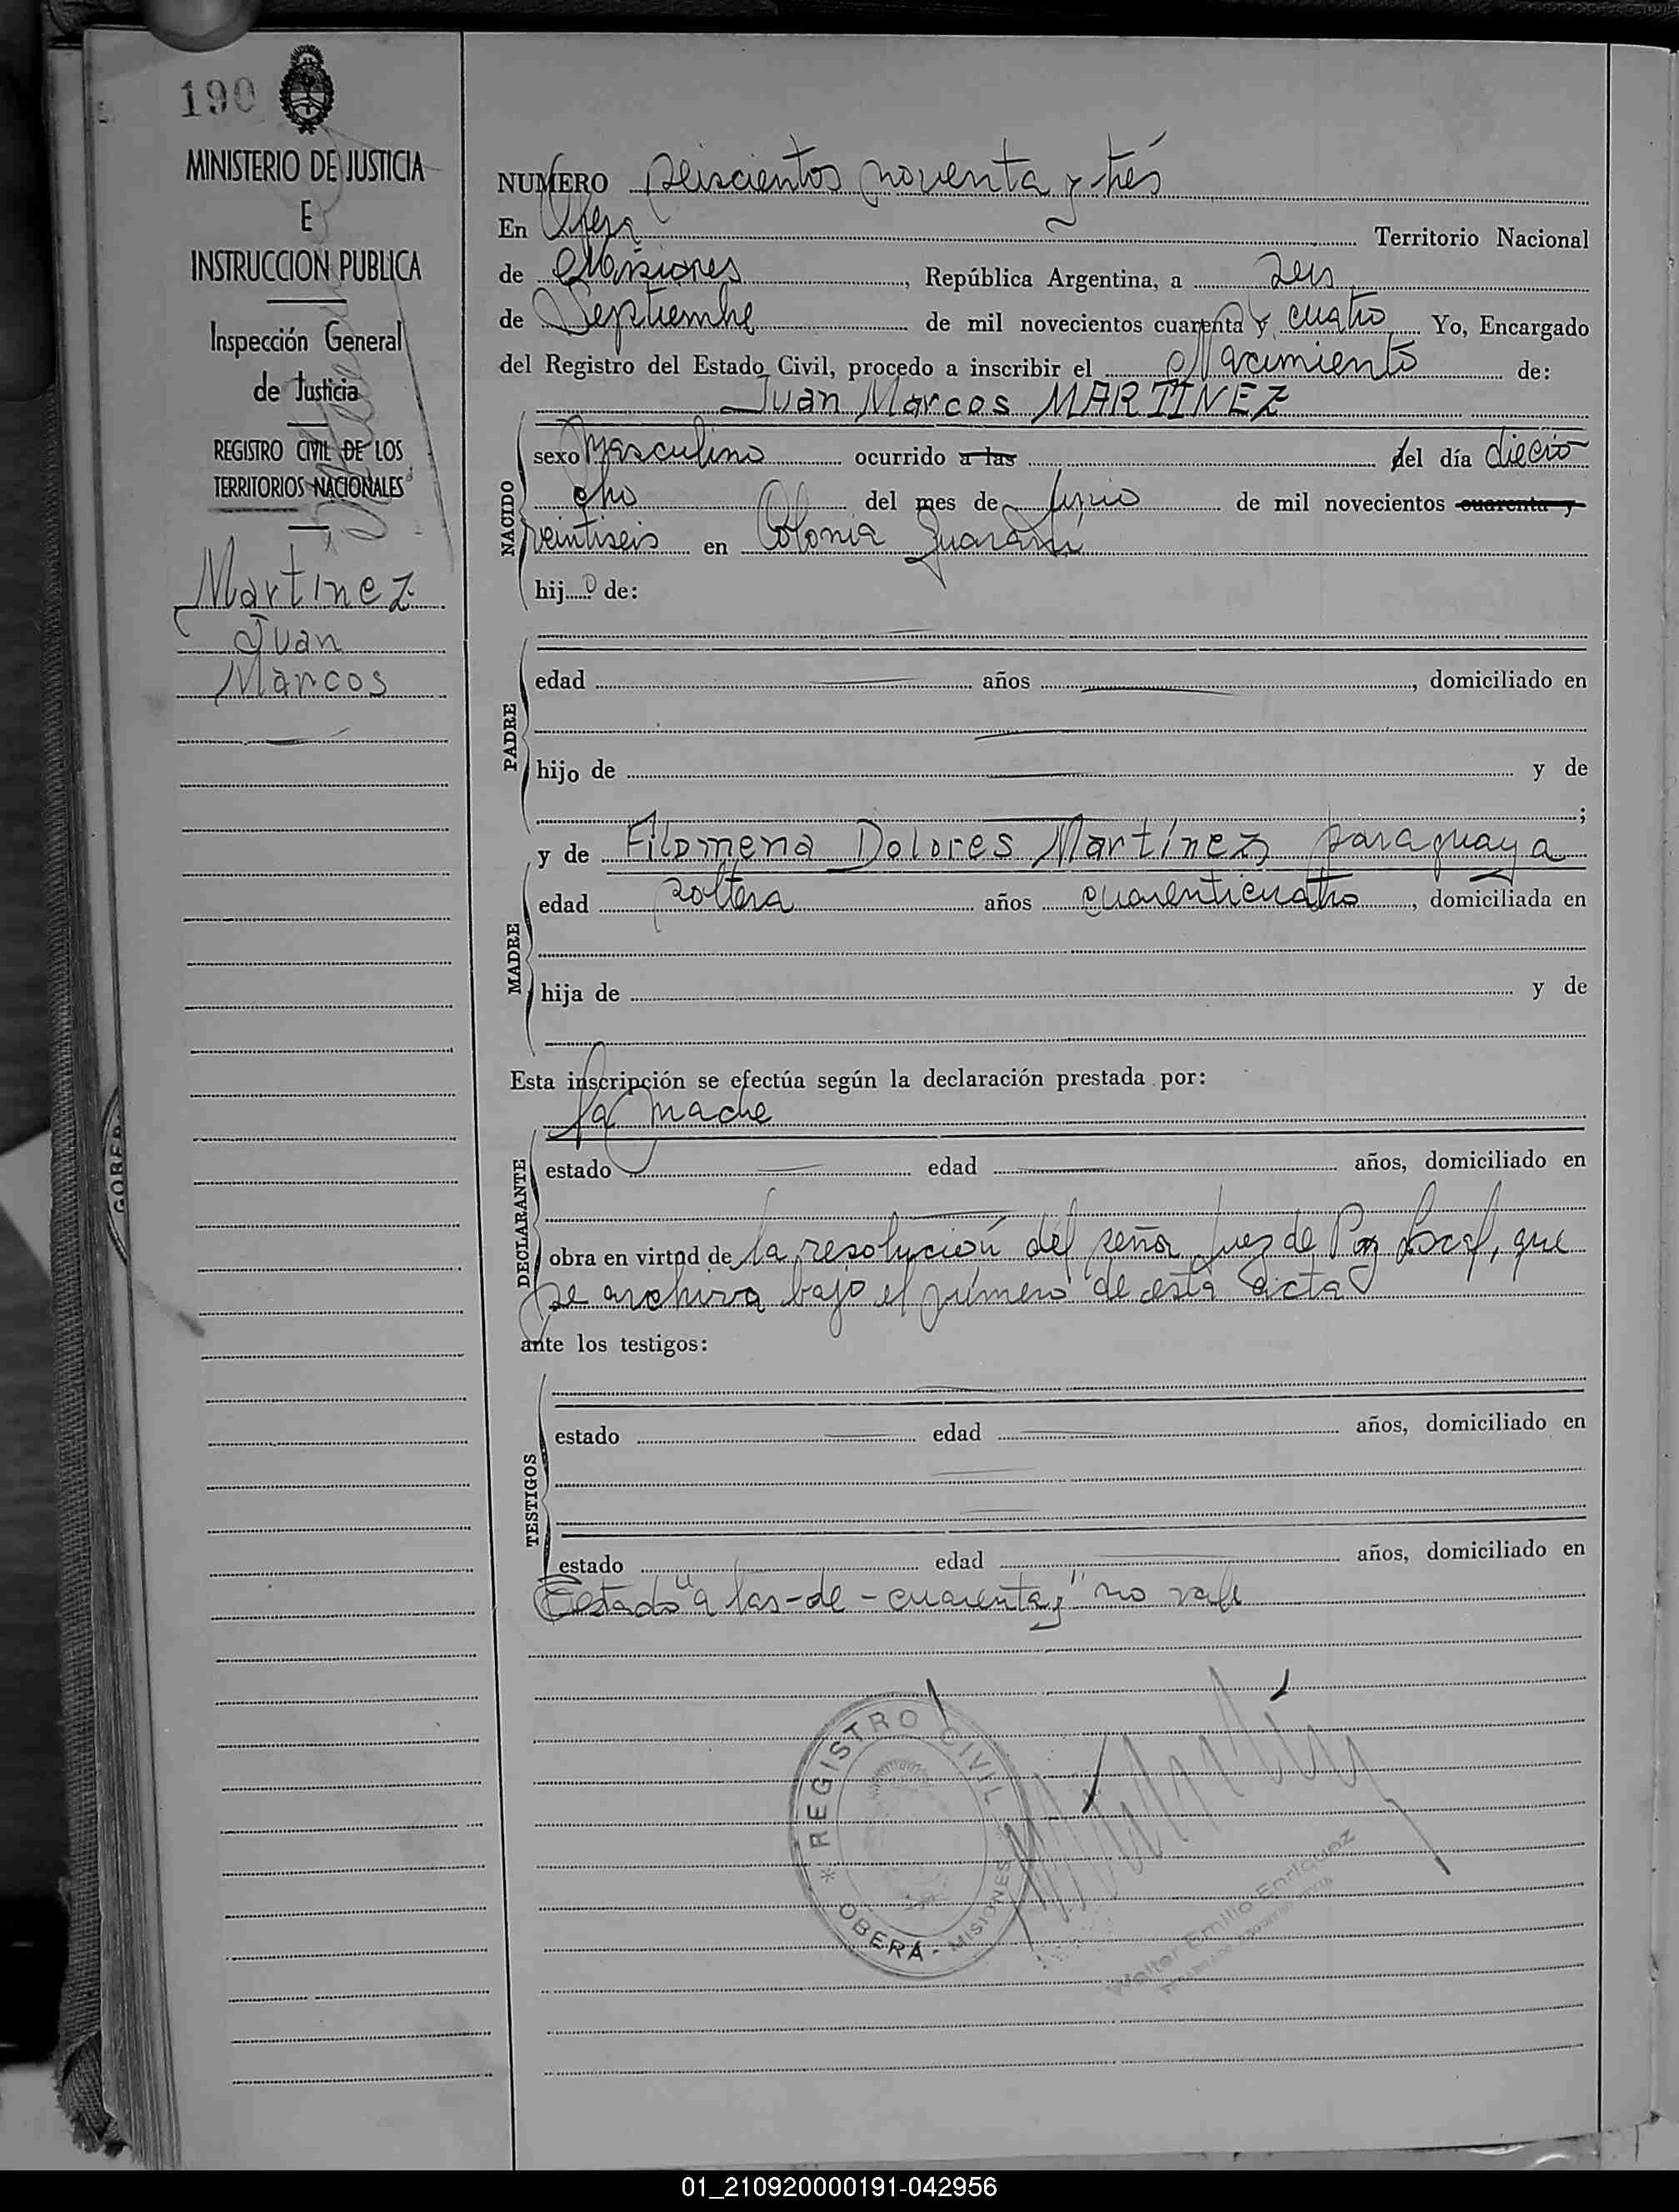 190
MINISTERIO DE JUSTICIA
E
INSTRUCCION PUBLICA
Inspección General
de Justicia
REGISTRO CIVIL DE LOS
TERRITORIOS NACIONALES
Martínez
Juan
Marcos
NUMERO seiscientos noventa y trés
En Oberá Territorio Nacional
de Misiones, República Argentina, a seis
de Septiembre de mil novecientos cuarenta y cuatro Yo, Encargado
del Registro del Estado Civil, procedo a inscribir el Nacimiento de:
Juan Marcos MARTINEZ
NACIDO
sexo Masculino ocurrido a las del día diecio
cho del mes de Junio de mil novecientos cuarenta y
veintiseis en Colonia Guaraní
hijo de:
PADRE
edad años, domiciliado en
hijo de y de
;
MADRE
y de Filomena Dolores Martínez, paraguaya
edad soltera años cuarenticuatro, domiciliada en
hija de y de
Esta inscripción se efectúa según la declaración prestada por:
la madre
DECLARANTE
estado edad años, domiciliado en
obra en virtud de la resolución del señor Juez de Paz Local, que
se archiva bajo el número de esta acta
ante los testigos:
TESTIGOS
estado edad años, domiciliado en
estado edad años, domiciliado en
Testado "a las-de-cuarenta y" no vale
REGISTRO CIVIL
OBERA - MISIONES
Walter Emilio Enriquez
01_210920000191-042956